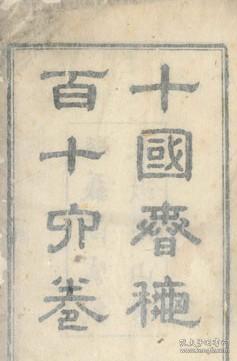 十國春秋
百十六卷